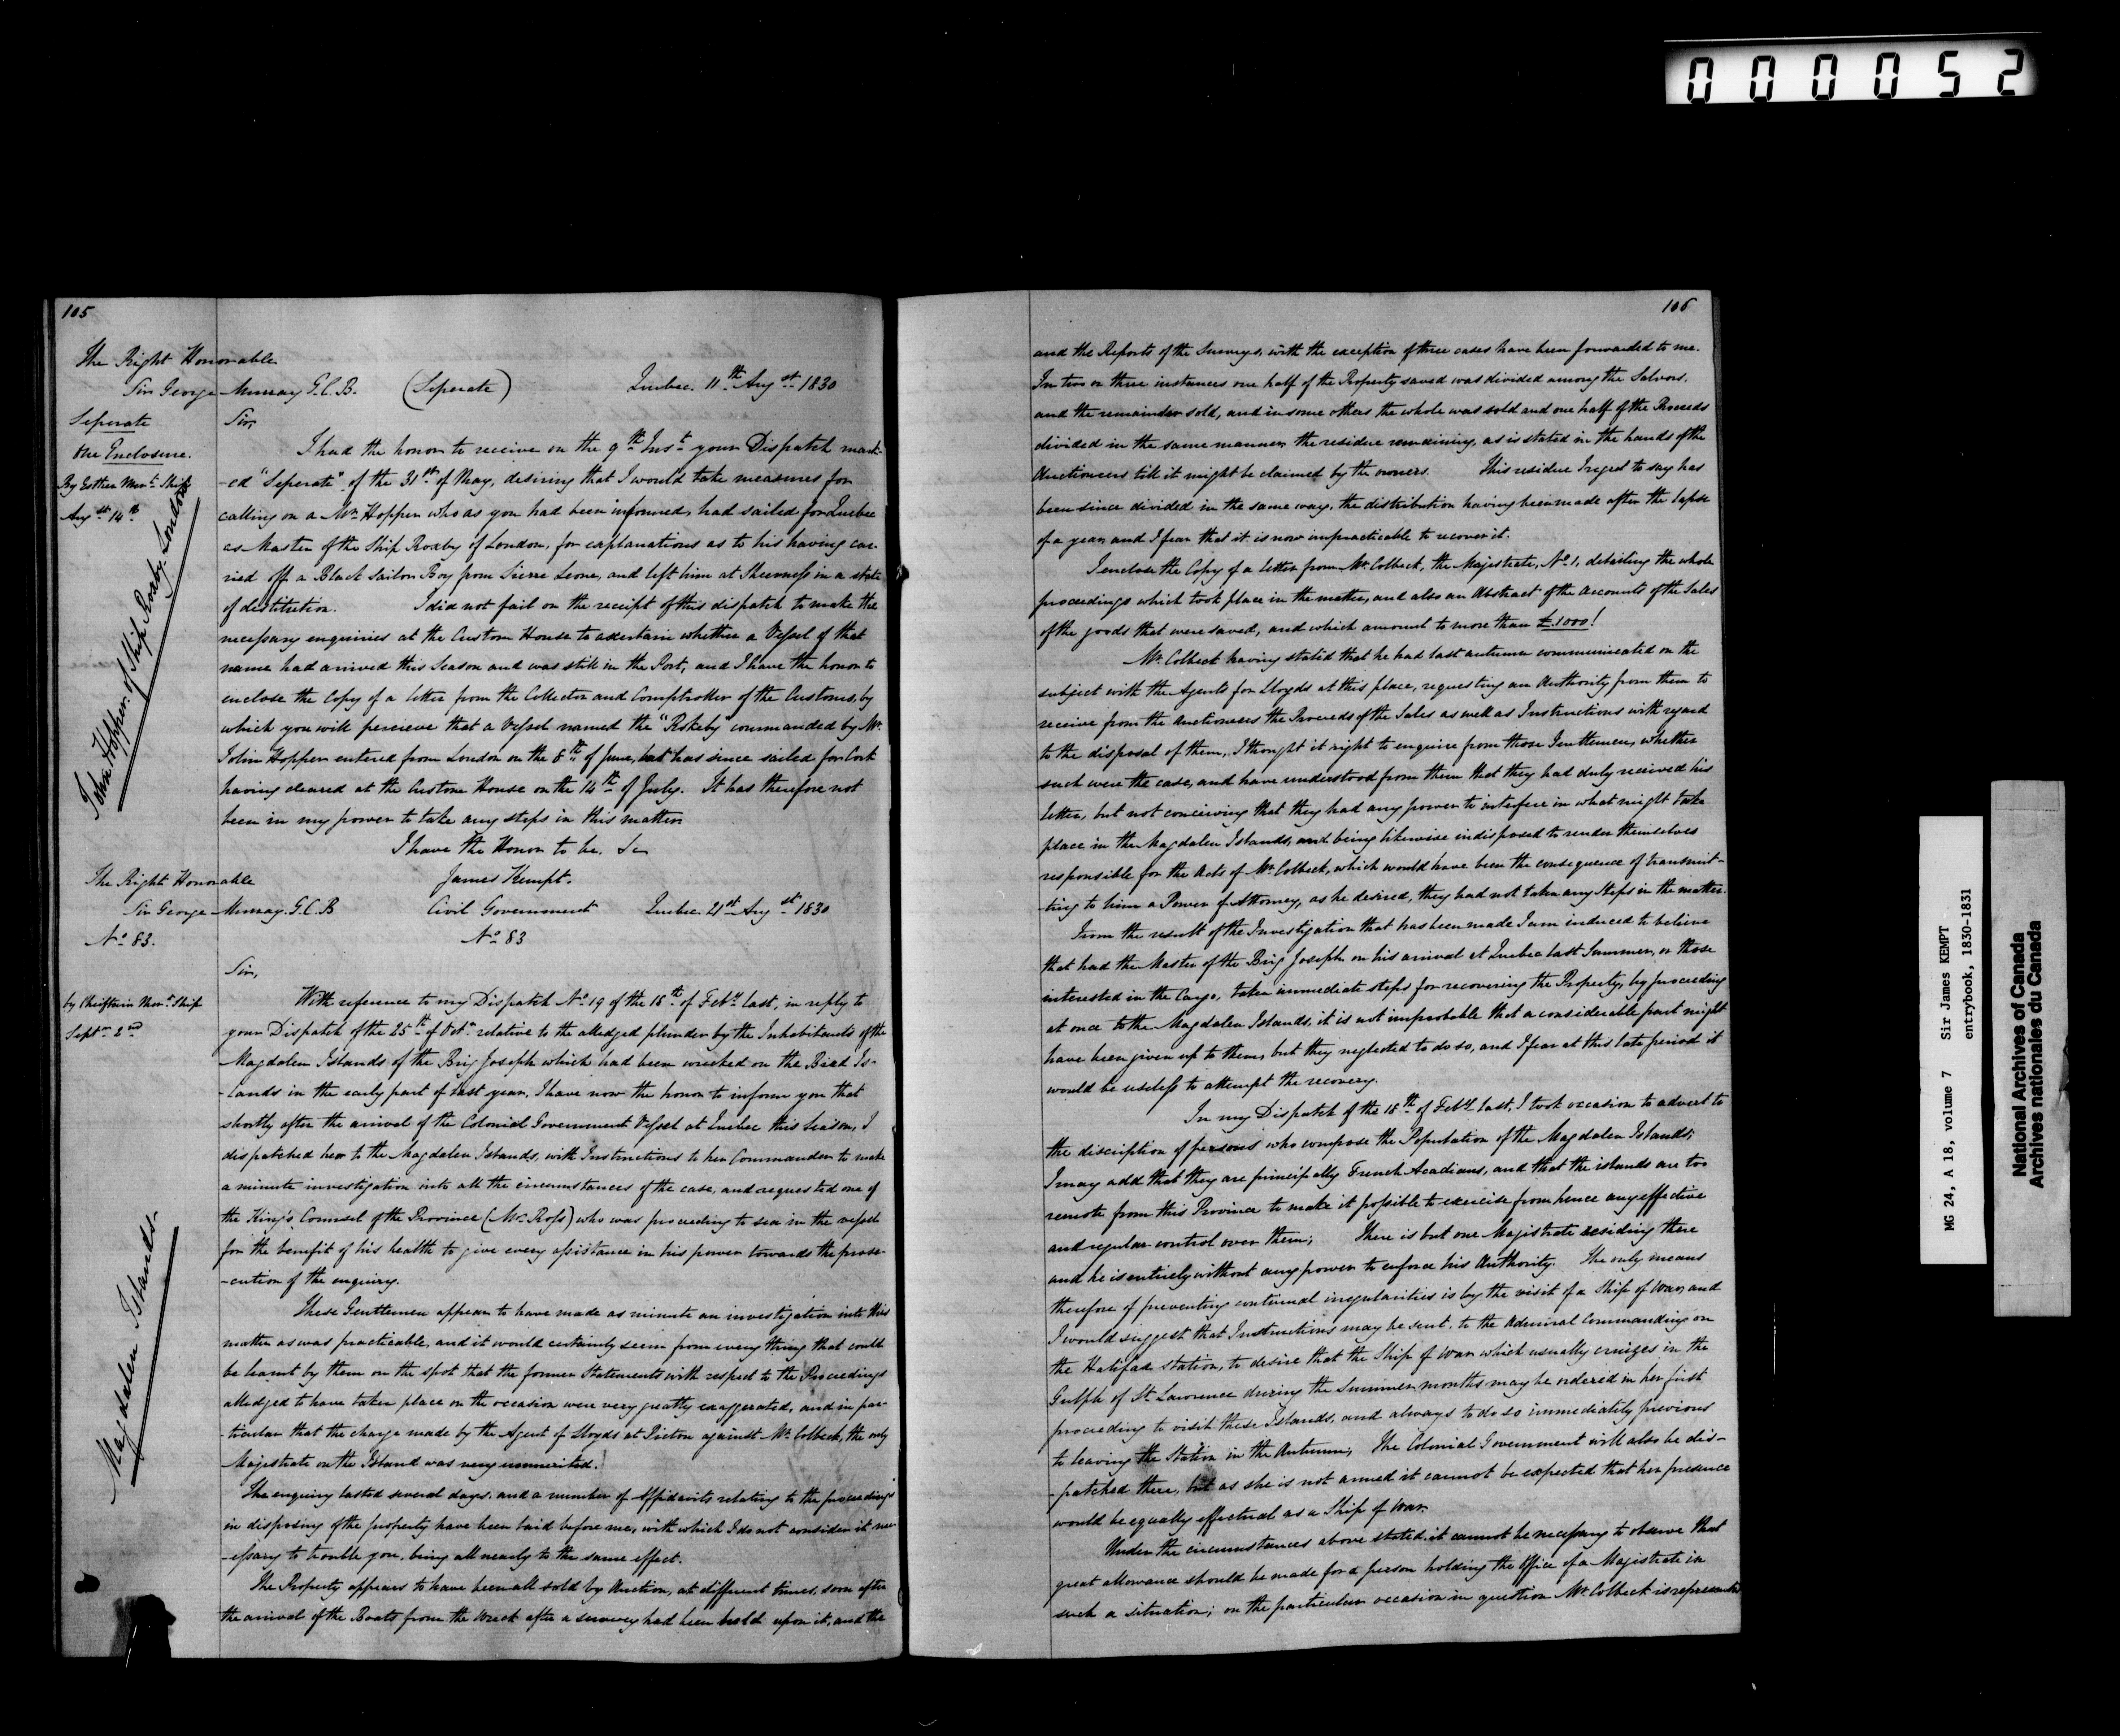 000052
105
The Right Honorable
Sir George Murray G.C.B. (Seperate) Quebec 11th Augst 1830
Seperate
One Enclosure.
By Esther Mert Ship
Augst 14th
John Hopper of Ship Roxby London
Sir,
I had the honor to receive on the 9th Inst your Dispatch mark-
-ed "Seperate" of the 31st of May, desiring that I would take measures for
calling on a Mr Hopper who as you had been informed, had sailed for Quebec
as Master of the Ship Roxby of London, for explanations as to his having car-
ried off a Black Sailor Boy from Sierre Leone, and left him at Sheerness in a state
of destitution. I did not fail on the receipt of this dispatch to make the
necessary enquiries at the Custom House to ascertain whether a Vessel of that
name had arrived this Season and was still in the Port, and I have the honor to
enclose the Copy of a letter from the Collector and Comptroller of the Customs, by
which you will percieve that a Vessel named the "Rokeby" commanded by Mr
John Hopper entered from London on the 8th of June, but has since sailed for Cork
having cleared at the Custom House on the 14th of July. It has therefore not
been in my power to take any steps in this matter
I have the Honor to be. &c
James Kempt.
The Right Honorable
Sir George Murray G.C.B Civil Government Quebec 21st Augst 1830
No 83. No 83
by Chieftain Mert Ship
Septr 2nd
Magdalen Islands.
Sir,
With reference to my Dispatch No 19 of the 18th of Feby last, in reply to
your Dispatch of the 25th of Octr relative to the alledged plunder by the Inhabitants of the
Magdalen Islands of the Brig Joseph which had been wrecked on the Bird Is-
-lands in the early part of last year, I have now the honor to inform you that
shortly after the arrival of the Colonial Government Vessel at Quebec this Season, I
dispatched her to the Magdalen Islands, with Instructions to her Commander to make
a minute investigation into all the circumstances of the case, and requested one of
the King's Counsel of the Province (Mr Ross) who was proceeding to sea in the vessel
for the benefit of his health to give every assistance in his power towards the prose-
-cution of the enquiry.
These Gentlemen appear to have made as minute an investigation into this
matter as was practicable, and it would certainly seem from every thing that could
be learnt by them on the spot that the former Statements with respect to the Proceedings
alledged to have taken place on the occasion were very greatly exaggerated, and in par-
-ticular that the charge made by the Agent of Lloyds at Pictou against Mr Colbeck, the only
Majistrate on the Island was very unmerited.
The enquiry lasted several days, and a number of Affidavits relating to the proceedings
in disposing of the property have been laid before me, with which I do not consider it nec-
-essary to trouble you, being all nearly to the same effect.
The Property appears to have been all sold by Auction, at different times, soon after
the arrival of the Boats from the wreck after a survey had been held upon it, and the
106
and the Reports of the Surveys, with the exception of three cases have been forwarded to me.
In two or three instances one half of the Property saved was divided among the Salvors,
and the remainder sold, and in some others the whole was sold and one half of the Proceeds
divided in the same manner, the residue remaining, as is stated in the hands of the
Auctioneers till it might be claimed by the owners. This residue I regret to say has
been since divided in the same way, the distribution having been made after the lapse
of a year, and I fear that it is now impracticable to recover it.
I enclose the Copy of a letter from Mr Colbeck, the Majistrate, No 1, detailing the whole
proceedings which took place in the matter, and also an Abstract of the Accounts of the Sales
of the goods that were saved, and which amount to more than £1000!
Mr Colbeck having stated that he had last autumn communicated on the
subject with the Agents for Lloyds at this place, requesting an Authority from them to
receive from the Auctioneers the Proceeds of the Sales as well as Instructions with regard
to the disposal of them, I thought it right to enquire from those Gentlemen, whether
such were the case, and have understood from them that they had duly received his
letter, but not conceiving that they had any power to interfere in what might take
place in the Magdalen Islands, and being likewise indisposed to render themselves
responsible for the Acts of Mr Colbeck, which would have been the consequence of transmit-
-ting to him a Power of Attorney, as he desired, they had not taken any Steps in the matter.
From the result of the Investigation that has been made I am induced to believe
that had the Master of the Brig Joseph on his arrival at Quebec last Summer, or those
interested in the Cargo, taken immediate steps for recovering the Property, by proceeding
at once to the Magdalen Islands, it is not improbable that a considerable part might
have been given up to them, but they neglected to do so, and I fear at this late period it
would be useless to attempt the recovery.
In my Dispatch of the 18th of Feby last, I took occasion to advert to
the discription of persons who compose the Population of the Magdalen Islands;
I may add that they are principally French Acadians, and that the islands are too
remote from this Province to make it possible to exercise from hence any effective
and regular control over them; There is but one Magistrate residing there
and he is entirely without any power to enforce his Authority. The only means
therefore of preventing continual irregularities is by the visit of a Ship of War, and
I would suggest that Instructions may be sent, to the Admiral Commanding on
the Halifax station, to desire that the Ship of War which usually cruizes in the
Gulph of St Lawrence during the Summer months may be ordered in her first
proceeding to visit these Islands, and always to do so immediately previous
to leaving the Station in the Autumn; The Colonial Government will also be dis-
-patched there, but as she is not armed it cannot be expected that her presence
would be equally effectual as a Ship of War.
Under the circumstances above stated, it cannot be necessary to observe that
great allowance should be made for a person holding the Office of a Majistrate in
such a situation; on the particular occasion in question Mr Colbeck is represented
MG 24, A 18, volume 7 Sir James KEMPT
entrybook, 1830-1831
National Archives of Canada
Archives nationales du Canada